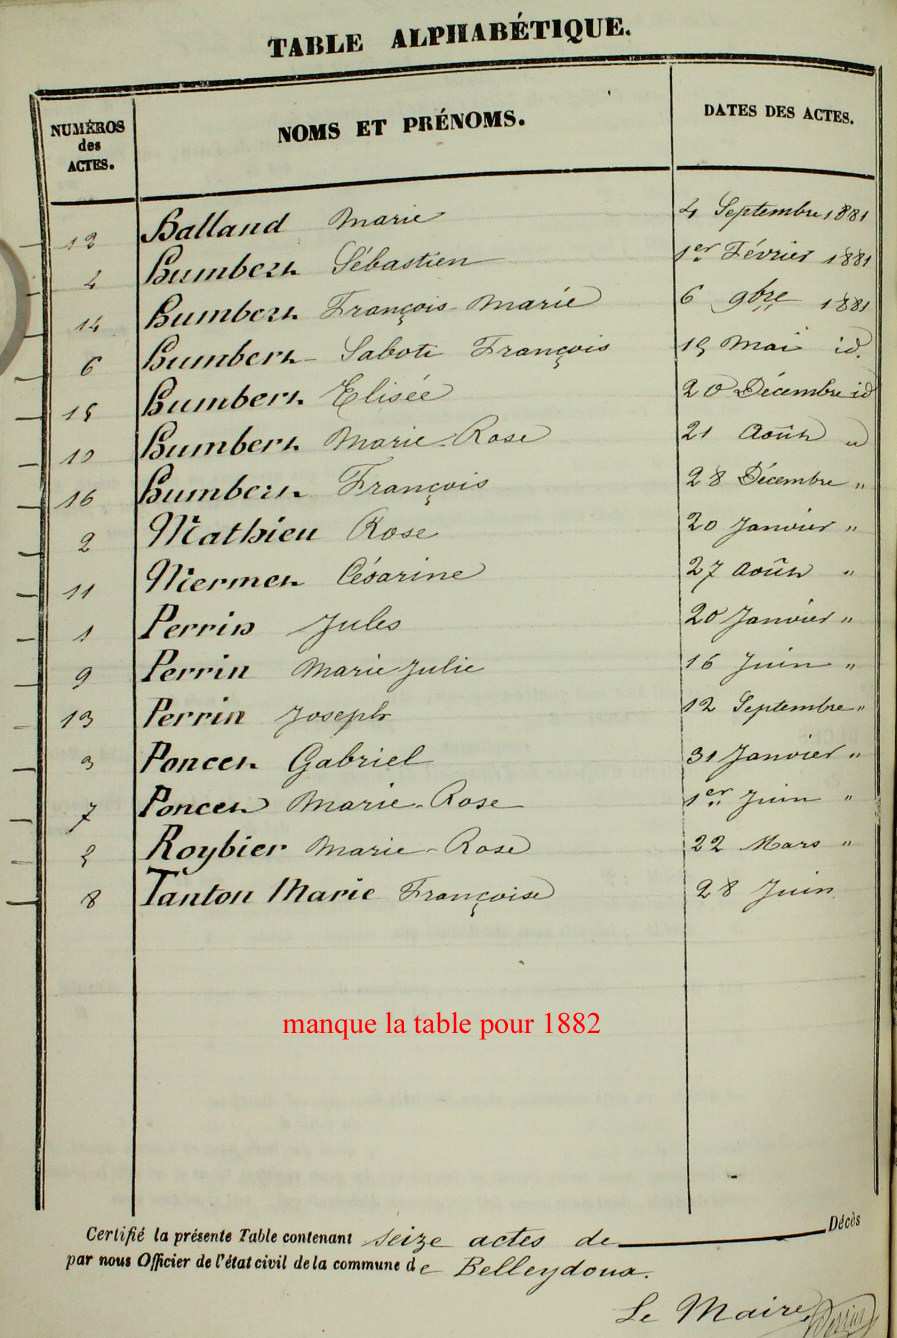 TABLE ALPHABÉTIQUE.
NUMÉROS des ACTES. NOMS ET PRÉNOMS. DATES DES ACTES.
12 Balland Marie 4 Septembre 1881
4 Humbert Sébastien 1er Février 1881
14 Humbert François-Marie 6 9bre 1881
6 Humbert-Sabot François 15 Mai id.
15 Humbert Elisée 20 Décembre id
10 Humbert Marie-Rose 21 Août "
16 Humbert François 28 Décembre "
2 Mathieu Rose 20 Janvier "
11 Mermet Césarine 27 Août "
1 Perrin Jules 20 Janvier "
9 Perrin Marie Julie 16 Juin "
13 Perrin Joseph 12 Septembre "
3 Poncet Gabriel 31 Janvier "
7 Poncet Marie-Rose 1er Juin "
Roybier Marie-Rose 22 Mars "
8 Tanton Marie Françoise 28 Juin
manque la table pour 1882
Certifié la présente Table contenant seize actes de Décès
par nous Officier de l'état civil de la commune de Belleydoux.
Le Maire, Perrin